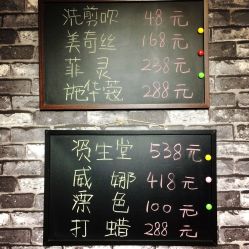 洗剪吹 48元
美奇丝 168元
菲灵 238元
施华蔻 288元
资生堂 538元
威娜 418元
漂色 100元
打蜡 288元